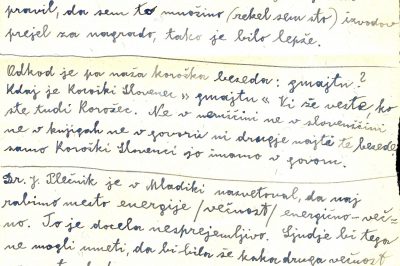 pravil, da sem to množino (rekel sem sto) izvodov
prejel za nagrado, tako je bilo lepše.
Odkod je pa naša koroška beseda: gmajtn?
Kdaj je Koroški Slovenec »gmajtn« Vi že veste, ko
ste tudi Korošec. Ne v nemščini ne v slovenščini
ne v knjigah ne v govoru ni drugje najti te besede
samo Koroški Slovenci jo imamo v govoru.
Dr. J. Plečnik je v Mladiki nasvetoval, da naj
rabimo mesto energije / večnost / energično - več-
no. To je docela nesprejemljivo. Ljudje bi tega
ne mogli umeti, da bi bila še kaka druga večnost